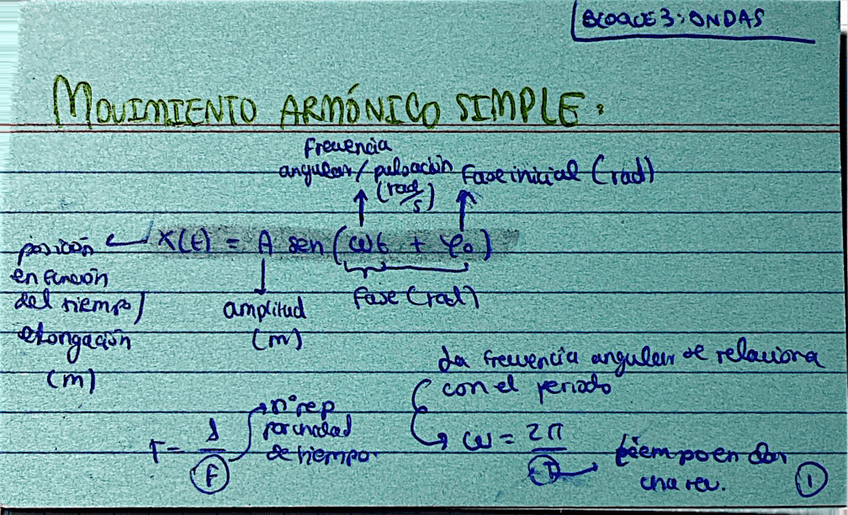 BLOQUE 3: ONDAS
MOVIMIENTO ARMÓNICO SIMPLE:
frecuencia
angular / pulsación
(rad/s)
Fase inicial (rad)
x(t) = A sen (ωt + φ₀)
posición
en función
del tiempo /
elongación
(m)
amplitud
(m)
Fase (rad)
La frecuencia angular se relaciona
con el periodo
T = 1/f
nº rep
por unidad
de tiempo.
ω = 2π/T
tiempo en dar
una rev.
1